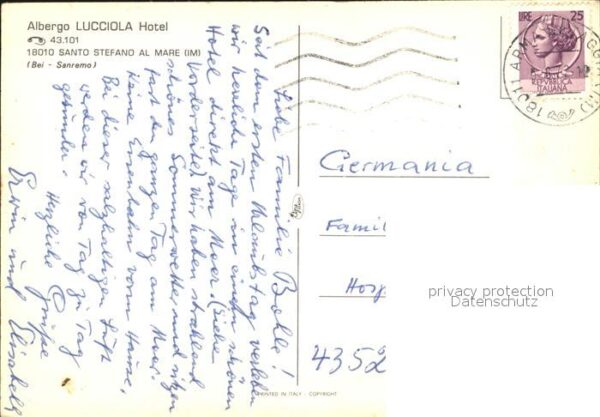 Albergo LUCCIOLA Hotel
43.101
18010 SANTO STEFANO AL MARE (IM)
(Bei - Sanremo)
Liebe Familie Bohle!
Seit dem ersten Urlaubstag verleben
wir herrliche Tage in einem schönen
Hotel direkt am Meer. (Siehe
Vorderseite) Wir haben strahlend
schönes Sommerwetter und sitzen
fast den ganzen Tag am Meer.
Keine Eisenbahn vorm Hause,
Bei dieser salzhaltigen Luft
werden wir von Tag zu Tag
gesünder.
Herzliche Grüße
Erwin und Elisabeth
PRINTED IN ITALY - COPYRIGHT
LIRE 25
REPVBBLICA
ITALIANA
Germania
Famil
privacy protection
Datenschutz
4352